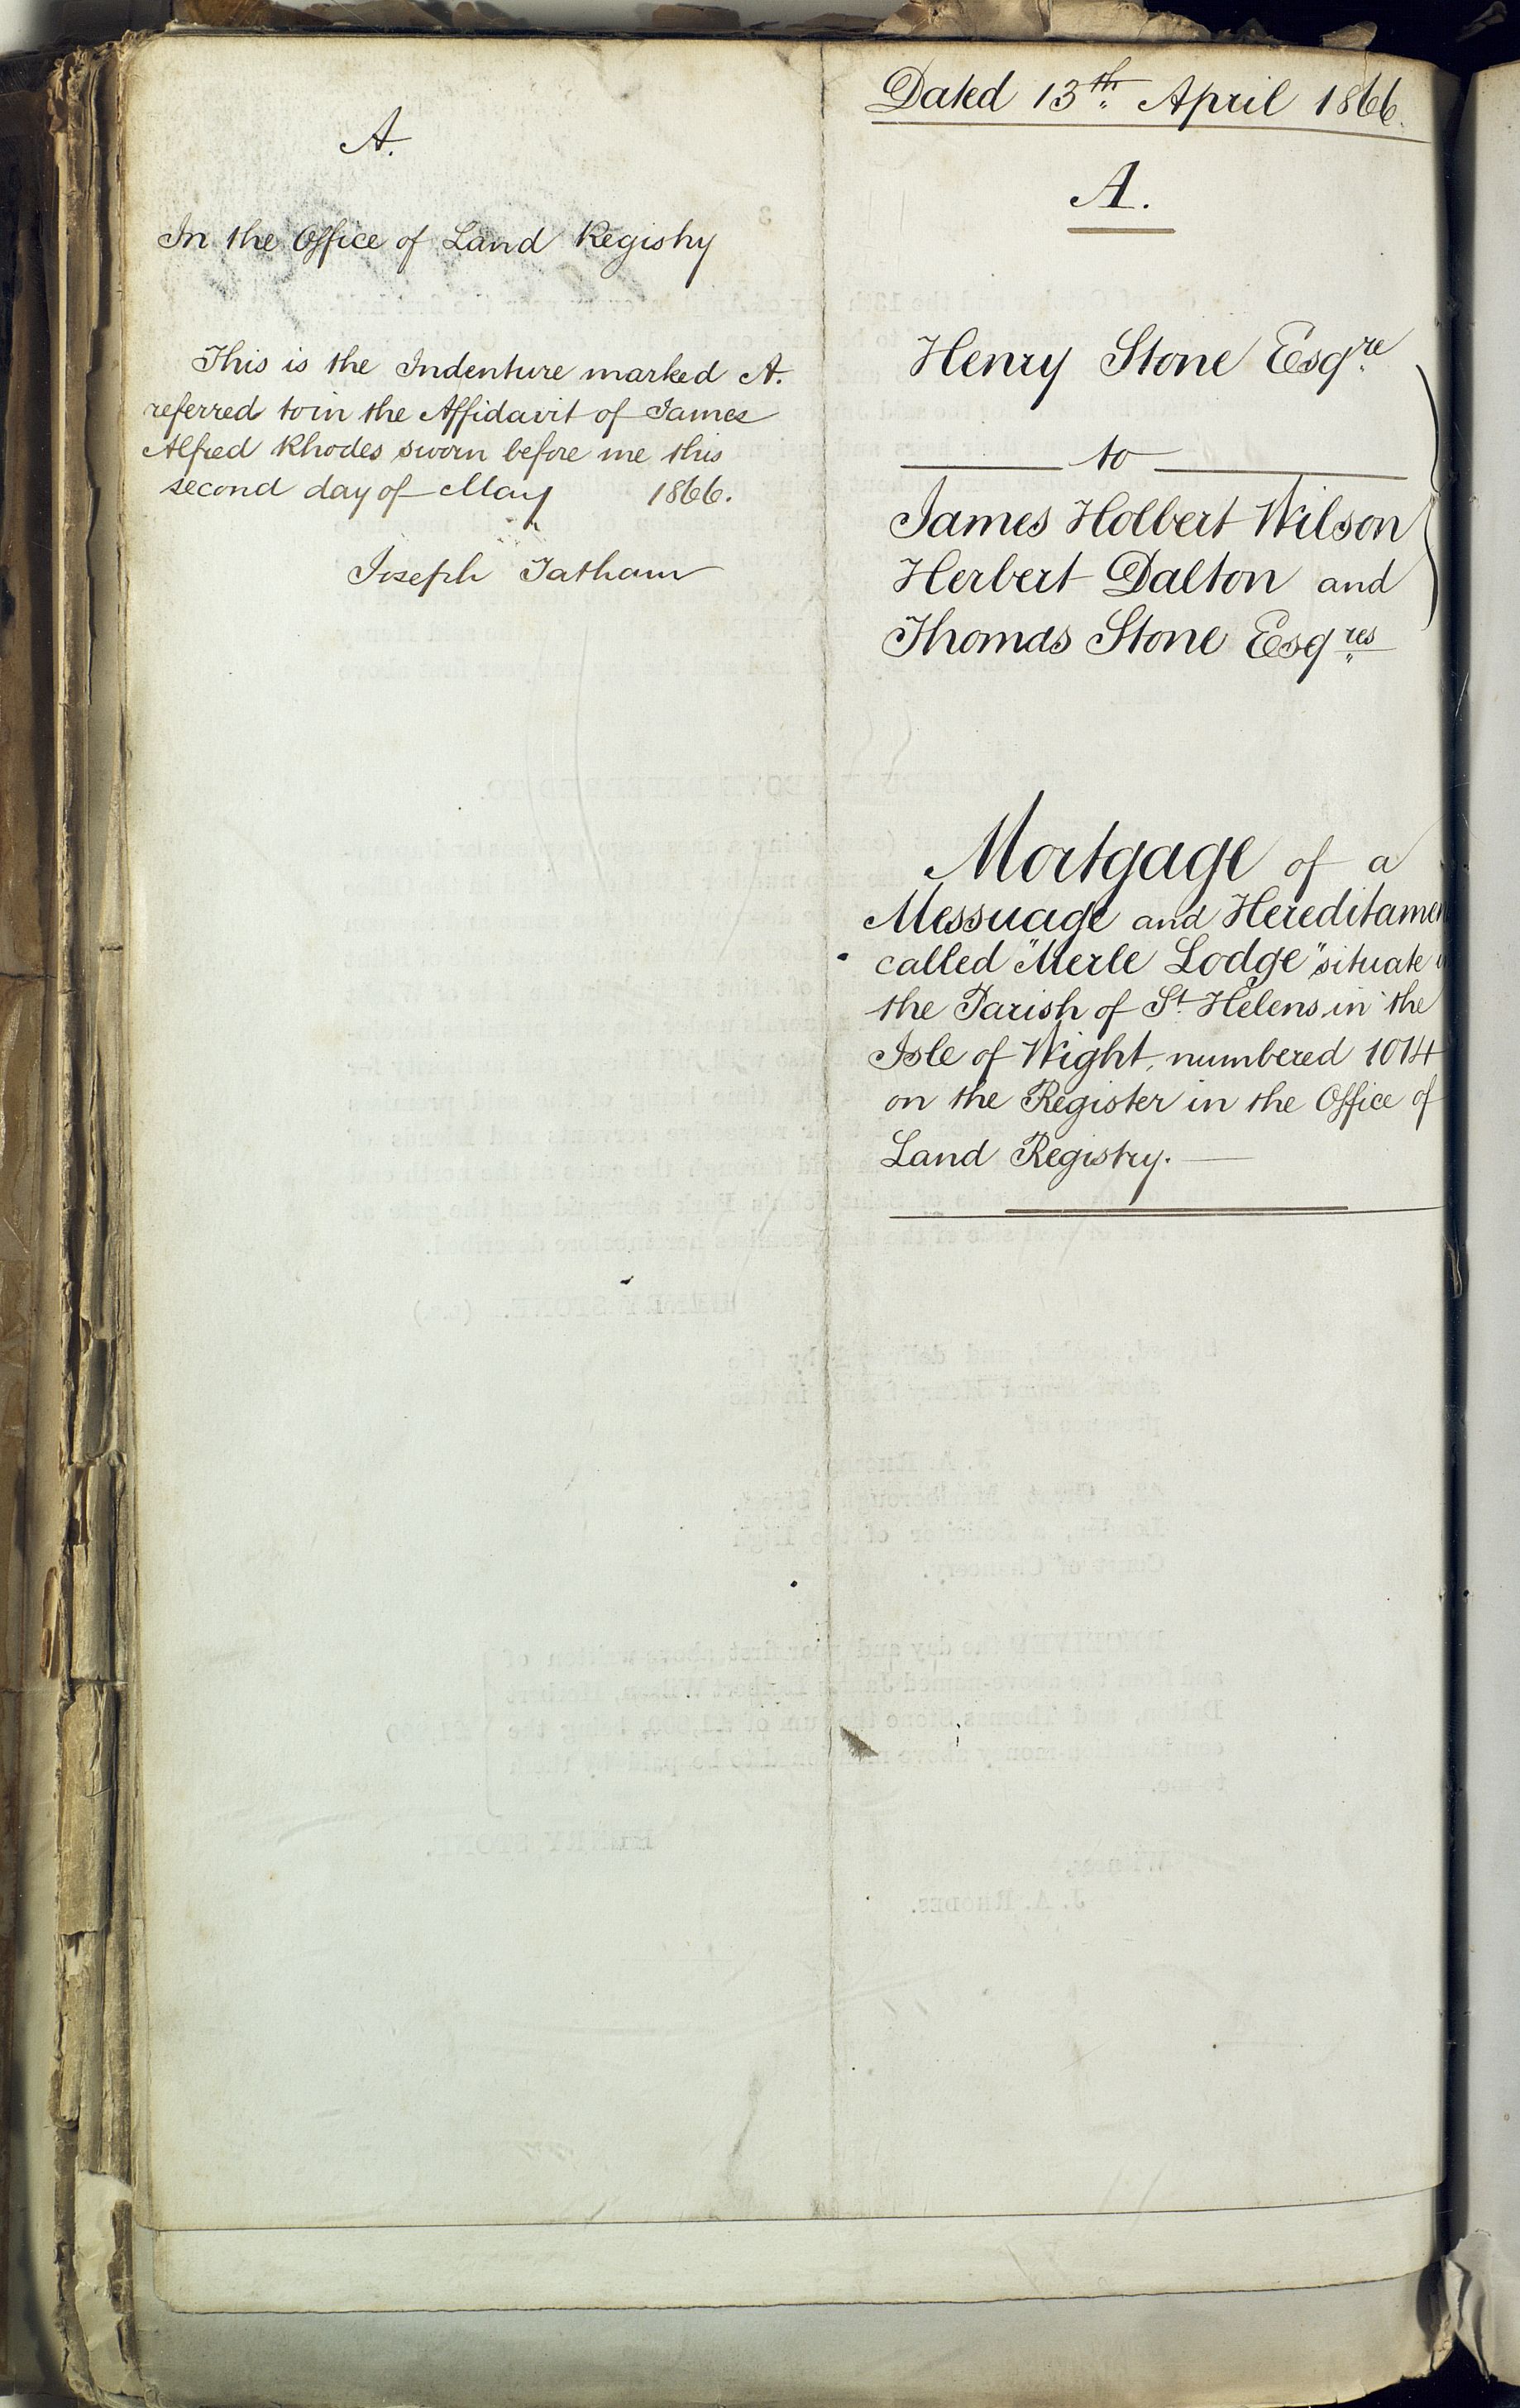 A.
In the Office of Land Registry
This is the Indenture marked A.
referred to in the Affidavit of James
Alfred Rhodes sworn before me this
second day of May 1866.
Joseph Tatham
Dated 13th April 1866.
A.
Henry Stone Esqre
to
James Holbert Wilson
Herbert Dalton and
Thomas Stone Esqres
Mortgage of a
Messuage and Hereditamen
called "Merle Lodge" situate
the Parish of St Helens in the
Isle of Wight, numbered 1014
on the Register in the Office of
Land Registry.